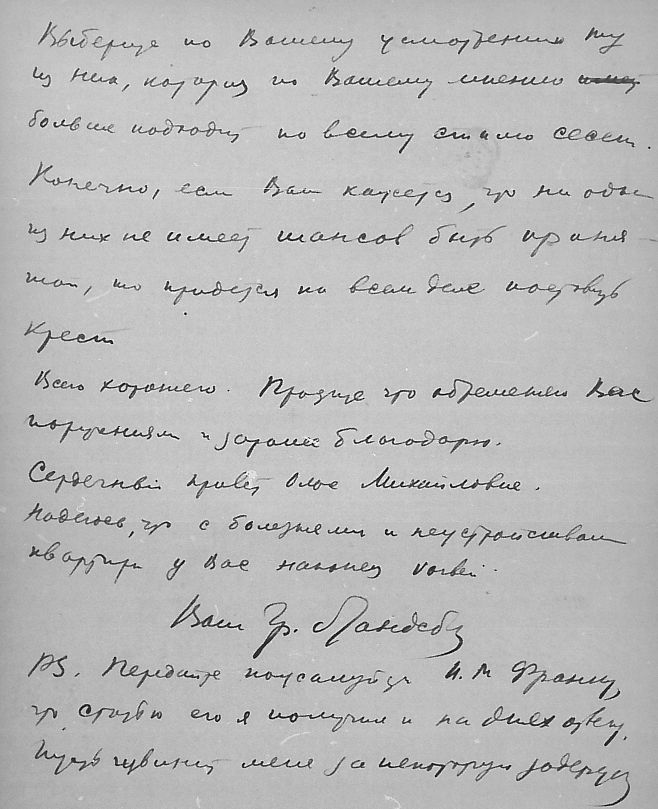 Выберите по Вашему усмотрению ту
из них, которая по Вашему мнению
больше подходит по всему
Конечно, если Вам кажется, что ни одна
из них не имеет шансов быть приня-
той, то придется на всем деле поставить
крест
Всего хорошего. Простите что обременяю Вас
поручениями и заранее благодарю.
Сердечный привет Ольге Михайловне.
Надеюсь, что с болезнями и неустройствами
квартиры у Вас наконец vorbei.
Ваш Гр. Ландсб
PS. Передайте пожалуйста И. М Франку,
что статью его я получил и на днях отвечу.
Пусть извинит меня за некоторую задержку